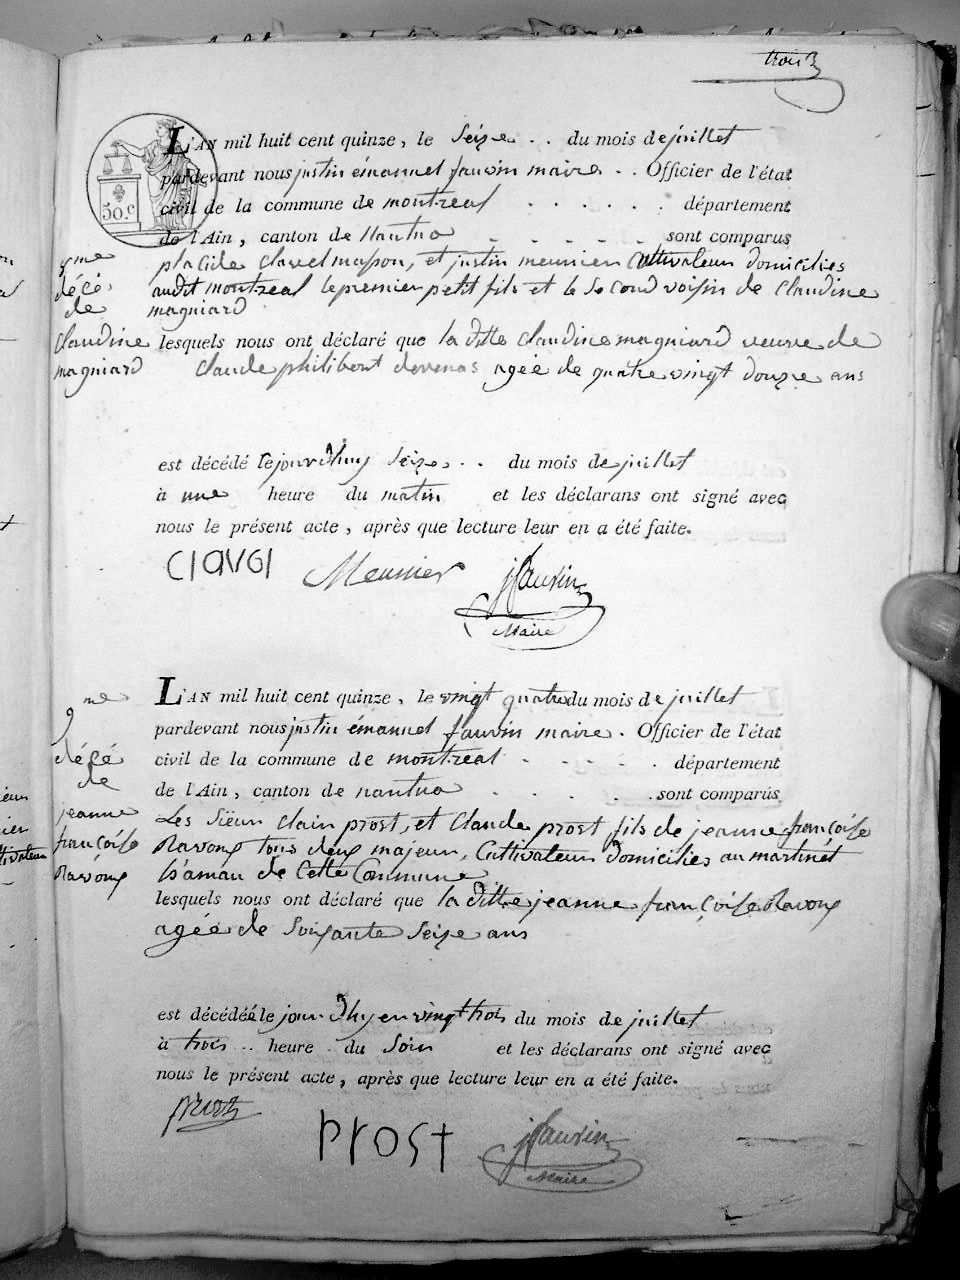 trois
L'AN mil huit cent quinze, le Seize .. du mois de juillet
pardevant nous justin émanuel fauvin maire .. Officier de l'état
civil de la commune de montreal . . . . . . département
de l'Ain, canton de Nantua . . . . . sont comparus
placide clavel masson, et justin meunier Cultivateur domicilies
audit montreal le premier petit fils et le Second voisin de Claudine
magniard
lesquels nous ont déclaré que la ditte Claudine magniard veuve de
Claude philibert devenas agée de quatre vingt douze ans
est décédé le jourdhuy Seize .. du mois de juillet
à une heure du matin et les déclarans ont signé avec
nous le présent acte, après que lecture leur en a été faite.
clavel Meunier jfauvin
Maire
50.c
8me
décés
de
Claudine
magniard
L'AN mil huit cent quinze, le vingt quatre du mois de juillet
pardevant nous justin émanuel fauvin maire . Officier de l'état
civil de la commune de montreal . . . . . département
de l'Ain, canton de nantua . . . . . sont comparus
Les Sieur clain prost, et Claude prost fils de jeanne françoise
Ravoux tous deux majeur, Cultivateur domicilies au martinet
hamau de Cette Commune
lesquels nous ont déclaré que la ditte jeanne françoise Ravoux
agée de Soixante Seize ans
est décédéé le jour dhyer vingt trois du mois de juillet
à trois .. heure . du Soir et les déclarans ont signé avec
nous le présent acte, après que lecture leur en a été faite.
prost prost jfauvin
Maire
9me
décé
de
jeanne
françoise
Ravoux